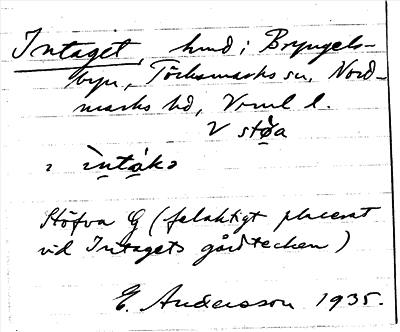 Intaget, hmd i Bryngels-
byn, Töcksmarks sn, Nord-
marks hd, Vrml l.
V stø̀a
2 ìntako
Stöfva G (felaktigt placerat
vid Intagets gårdtecken)
E. Andersson 1935.